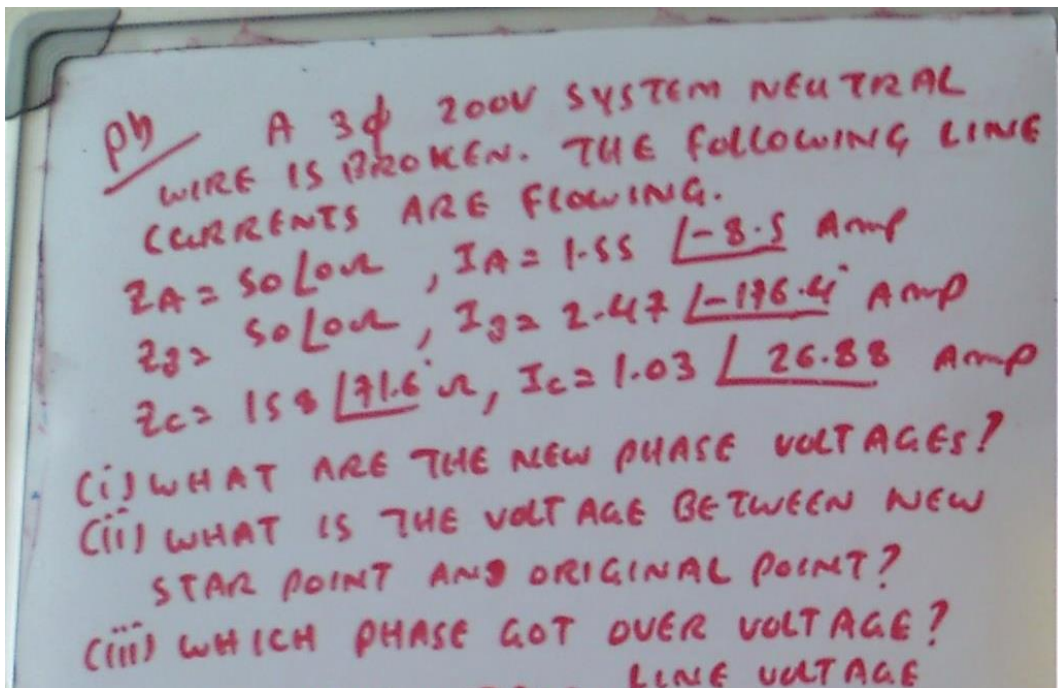 Pb A 3ϕ 200V SYSTEM NEUTRAL
WIRE IS BROKEN. THE FOLLOWING LINE
CURRENTS ARE FLOWING.
ZA = 50∠0Ω, IA = 1.55 ∠-8.5 Amp
ZB = 50∠0Ω, IB = 2.47 ∠-176.4° Amp
ZC = 158 ∠71.6° Ω, IC = 1.03 ∠26.88 Amp
(i) WHAT ARE THE NEW PHASE VOLTAGES?
(ii) WHAT IS THE VOLTAGE BETWEEN NEW
STAR POINT AND ORIGINAL POINT?
(iii) WHICH PHASE GOT OVER VOLTAGE?
LINE VOLTAGE